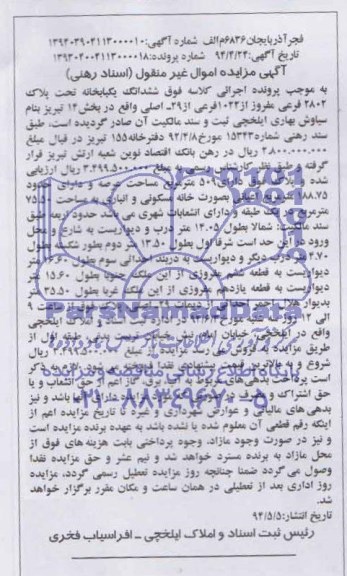 فجر آذربایجان ۶۸۳۶م الف شماره آگهی: ۱۳۹۴۰۳۹۰۴۱۱۳۰۰۰۰۱۰
تاریخ آگهی: ۹۴/۴/۲۴ شماره پرونده: ۱۳۹۳۰۴۰۰۴۱۱۳۰۰۰۰۱۸
آگهی مزایده اموال غیر منقول (اسناد رهنی)
به موجب پرونده اجرائی کلاسه فوق ششدانگ یکبابخانه تحت پلاک
۲۸۰۲ فرعی مفروز از ۱۰۲۳ فرعی از ۲۹ـ اصلی واقع در بخش ۱۴ تبریز بنام
سیاوش بهاری ایلخچی ثبت و سند مالکیت آن صادر گردیده است، طبق
سند رهنی شماره ۱۵۳۴۳ مورخ ۹۲/۴/۸ دفترخانه ۱۵۵ تبریز در قبال مبلغ
۲.۸۰۰.۰۰۰.۰۰۰ ریال در رهن بانک اقتصاد نوین شعبه ارتش تبریز قرار
گرفته و طبق نظر کارشناس رسمی به مبلغ ۳.۴۹۹.۵۰۰.۰۰۰ ریال ارزیابی
شده و پلاک فوق دارای ۵۰۹ مترمربع مساحت عرصه و دارای حدود
۱۸۸.۷۵ مترمربع اعیانی بصورت خانه مسکونی و انباری به مساحت ۷۵.۵
مترمربع در یک طبقه و دارای انشعابات شهری می باشد حدود اربعه طبق
سند مالکیت: شمالا بطول ۱۴.۰۵ متر درب و دیواریست به شارع و محل
ورود در این حد است شرقا اول بطول ۱۳.۵۰ متر دوم بطور شکسته بطول
۲۴.۷۰ متر دیگر و دیواریست به دربند احداثی سوم بطول ۶.۶۰ متر
دیواریست به قطعه ششم مفروزی از این ملک جنوبا بطول ۱۵.۶۰ متر
دیواریست به قطعه یازدهم مفروزی از این ملک غربا بطول ۳۵.۵۰ متر
بدیوار هلال احمر احداثی از دیمات ۲۹ـ اصلی پلاک فوق از ساعت ۹
الی ۱۲ روز مورخ در اداره ثبت اسناد و املاک ایلخچی
واقع در ایلخچی، خیابان امام، از
طریق مزایده به فروش می رسد مزایده از مبلغ ۳.۴۹۹.۵۰۰.۰۰۰ ریال
شروع و به بالاترین قیمت پیشنهادی نقدا فروخته می شود لازم به ذکر
است پرداخت بدهی های مربوط به آب، برق، گاز اعم از حق انشعاب و یا
حق اشتراک و مصرف در صورتی که مورد مزایده دارای آنها باشد و نیز
بدهی های مالیاتی و عوارض شهرداری و غیره تا تاریخ مزایده اعم از
اینکه رقم قطعی آن معلوم شده یا نشده باشد به عهده برنده مزایده است
و نیز در صورت وجود مازاد، وجوه پرداختی بابت هزینه های فوق از
محل مازاد به برنده مسترد خواهد شد و نیم عشر و حق مزایده نقدا
وصول می گردد ضمنا چنانچه روز مزایده تعطیل رسمی گردد، مزایده
روز اداری بعد از تعطیلی در همان ساعت و مکان مقرر برگزار خواهد
شد.
تاریخ انتشار: ۹۴/۵/۵
رئیس ثبت اسناد و املاک ایلخچی ـ افراسیاب فخری
ParsNamadData
پایگاه اطلاع رسانی مناقصه و مزایده
۰۲۱-۸۸۳۴۹۶۷۰-۵